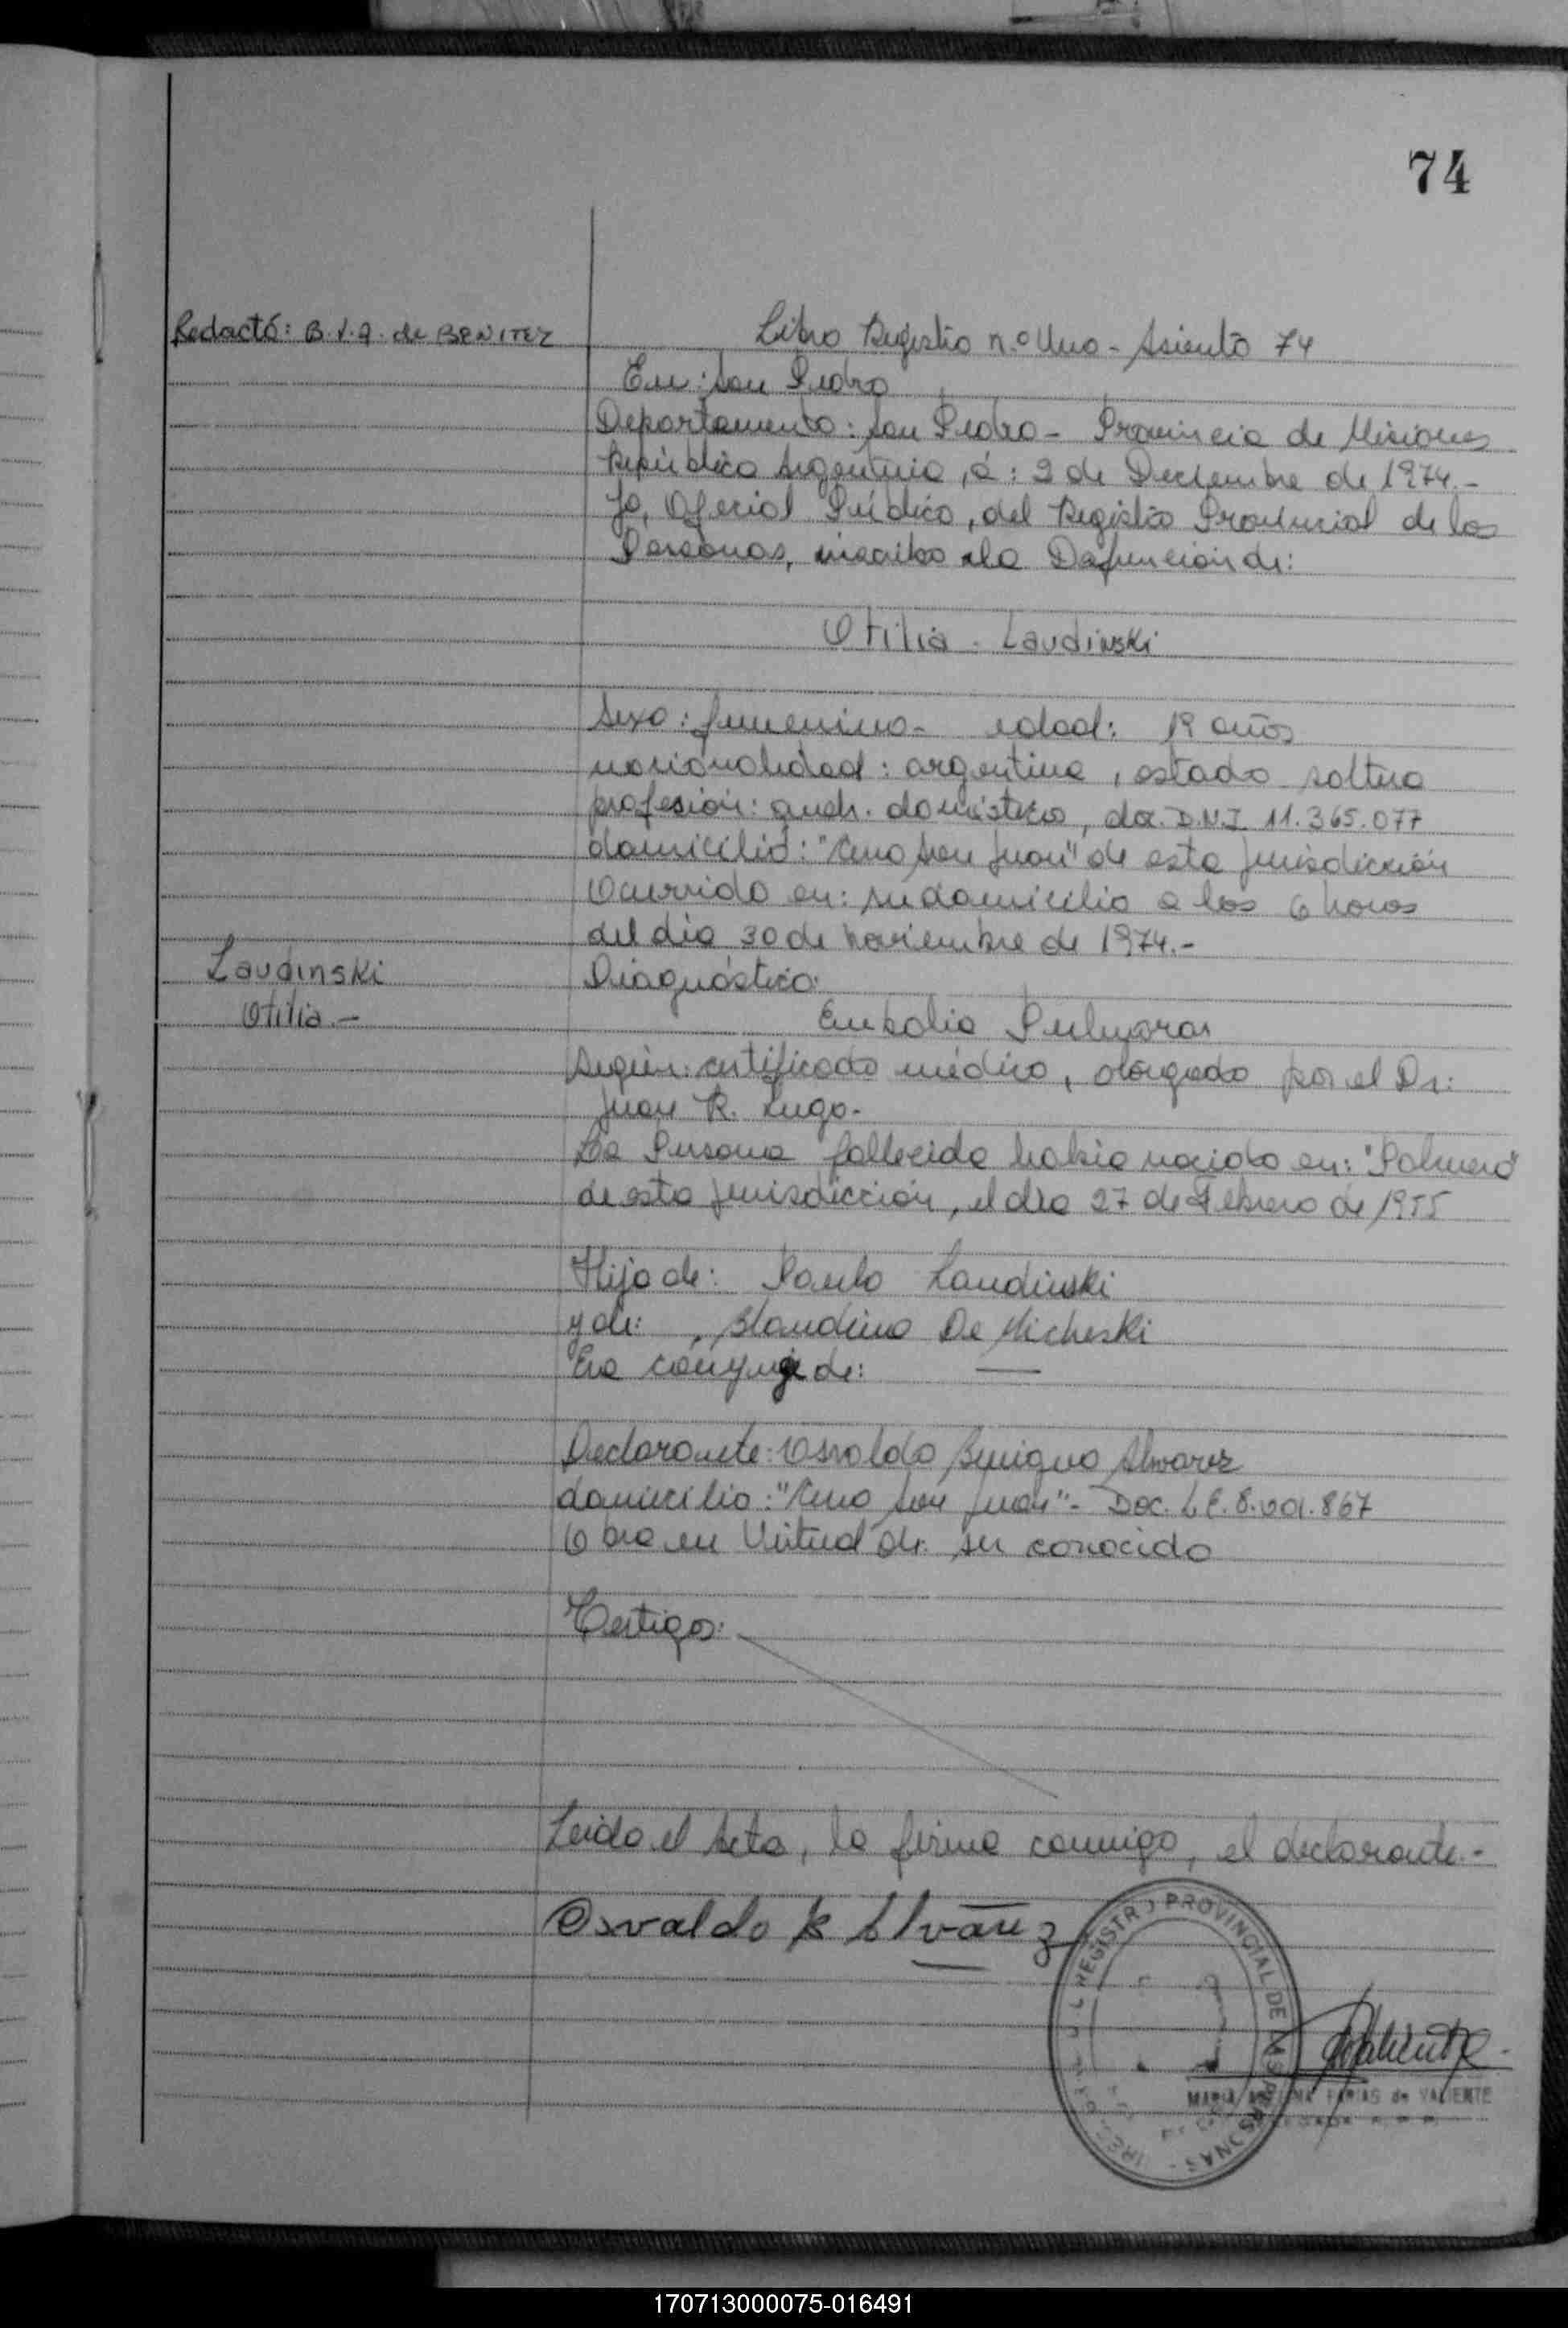 74
Redactó: B.V.A. de BENITEZ
Libro Registro n.º Uno - Asiento 74
En: San Pedro
Departamento: San Pedro - Provincia de Misiones
República Argentina, á: 2 de Diciembre de 1974.-
Yo, Oficial Público, del Registro Provincial de las
Personas, inscribo la Defunción de:
Otilia - Laudinski
Sexo: femenino - edad: 19 años
nacionalidad: argentina, estado soltera
profesión: queh. doméstico, doc. D.N.I. 11.365.077
domicilio: "Cruce San Juan" de esta jurisdicción
Ocurrida en: su domicilio a las 6 horas
del día 30 de noviembre de 1974.-
Laudinski
Otilia.-
Diagnóstico:
Embolia Pulmonar
Según: certificado médico, otorgado por el Dr:
Juan R. Lugo.
La Persona fallecida había nacido en: "Palmera"
de esta jurisdicción, el día 27 de Febrero de 1955
Hijo de: Paulo Laudinski
y de: Blandina De Micheski
Era cónyuge de: —
Declarante: Osvaldo Benigno Alvarez
domicilio: San Juan" - Doc. L.E. 8.201.867
Obra en Virtud de: ser conocido
Testigos:
Leida el Acta, la firma conmigo, el declarante.-
Osvaldo B Alvarez
REGISTRO PROVINCIAL DE LAS PERSONAS
Valiente
MARIA FARIAS de VALIENTE
170713000075-016491